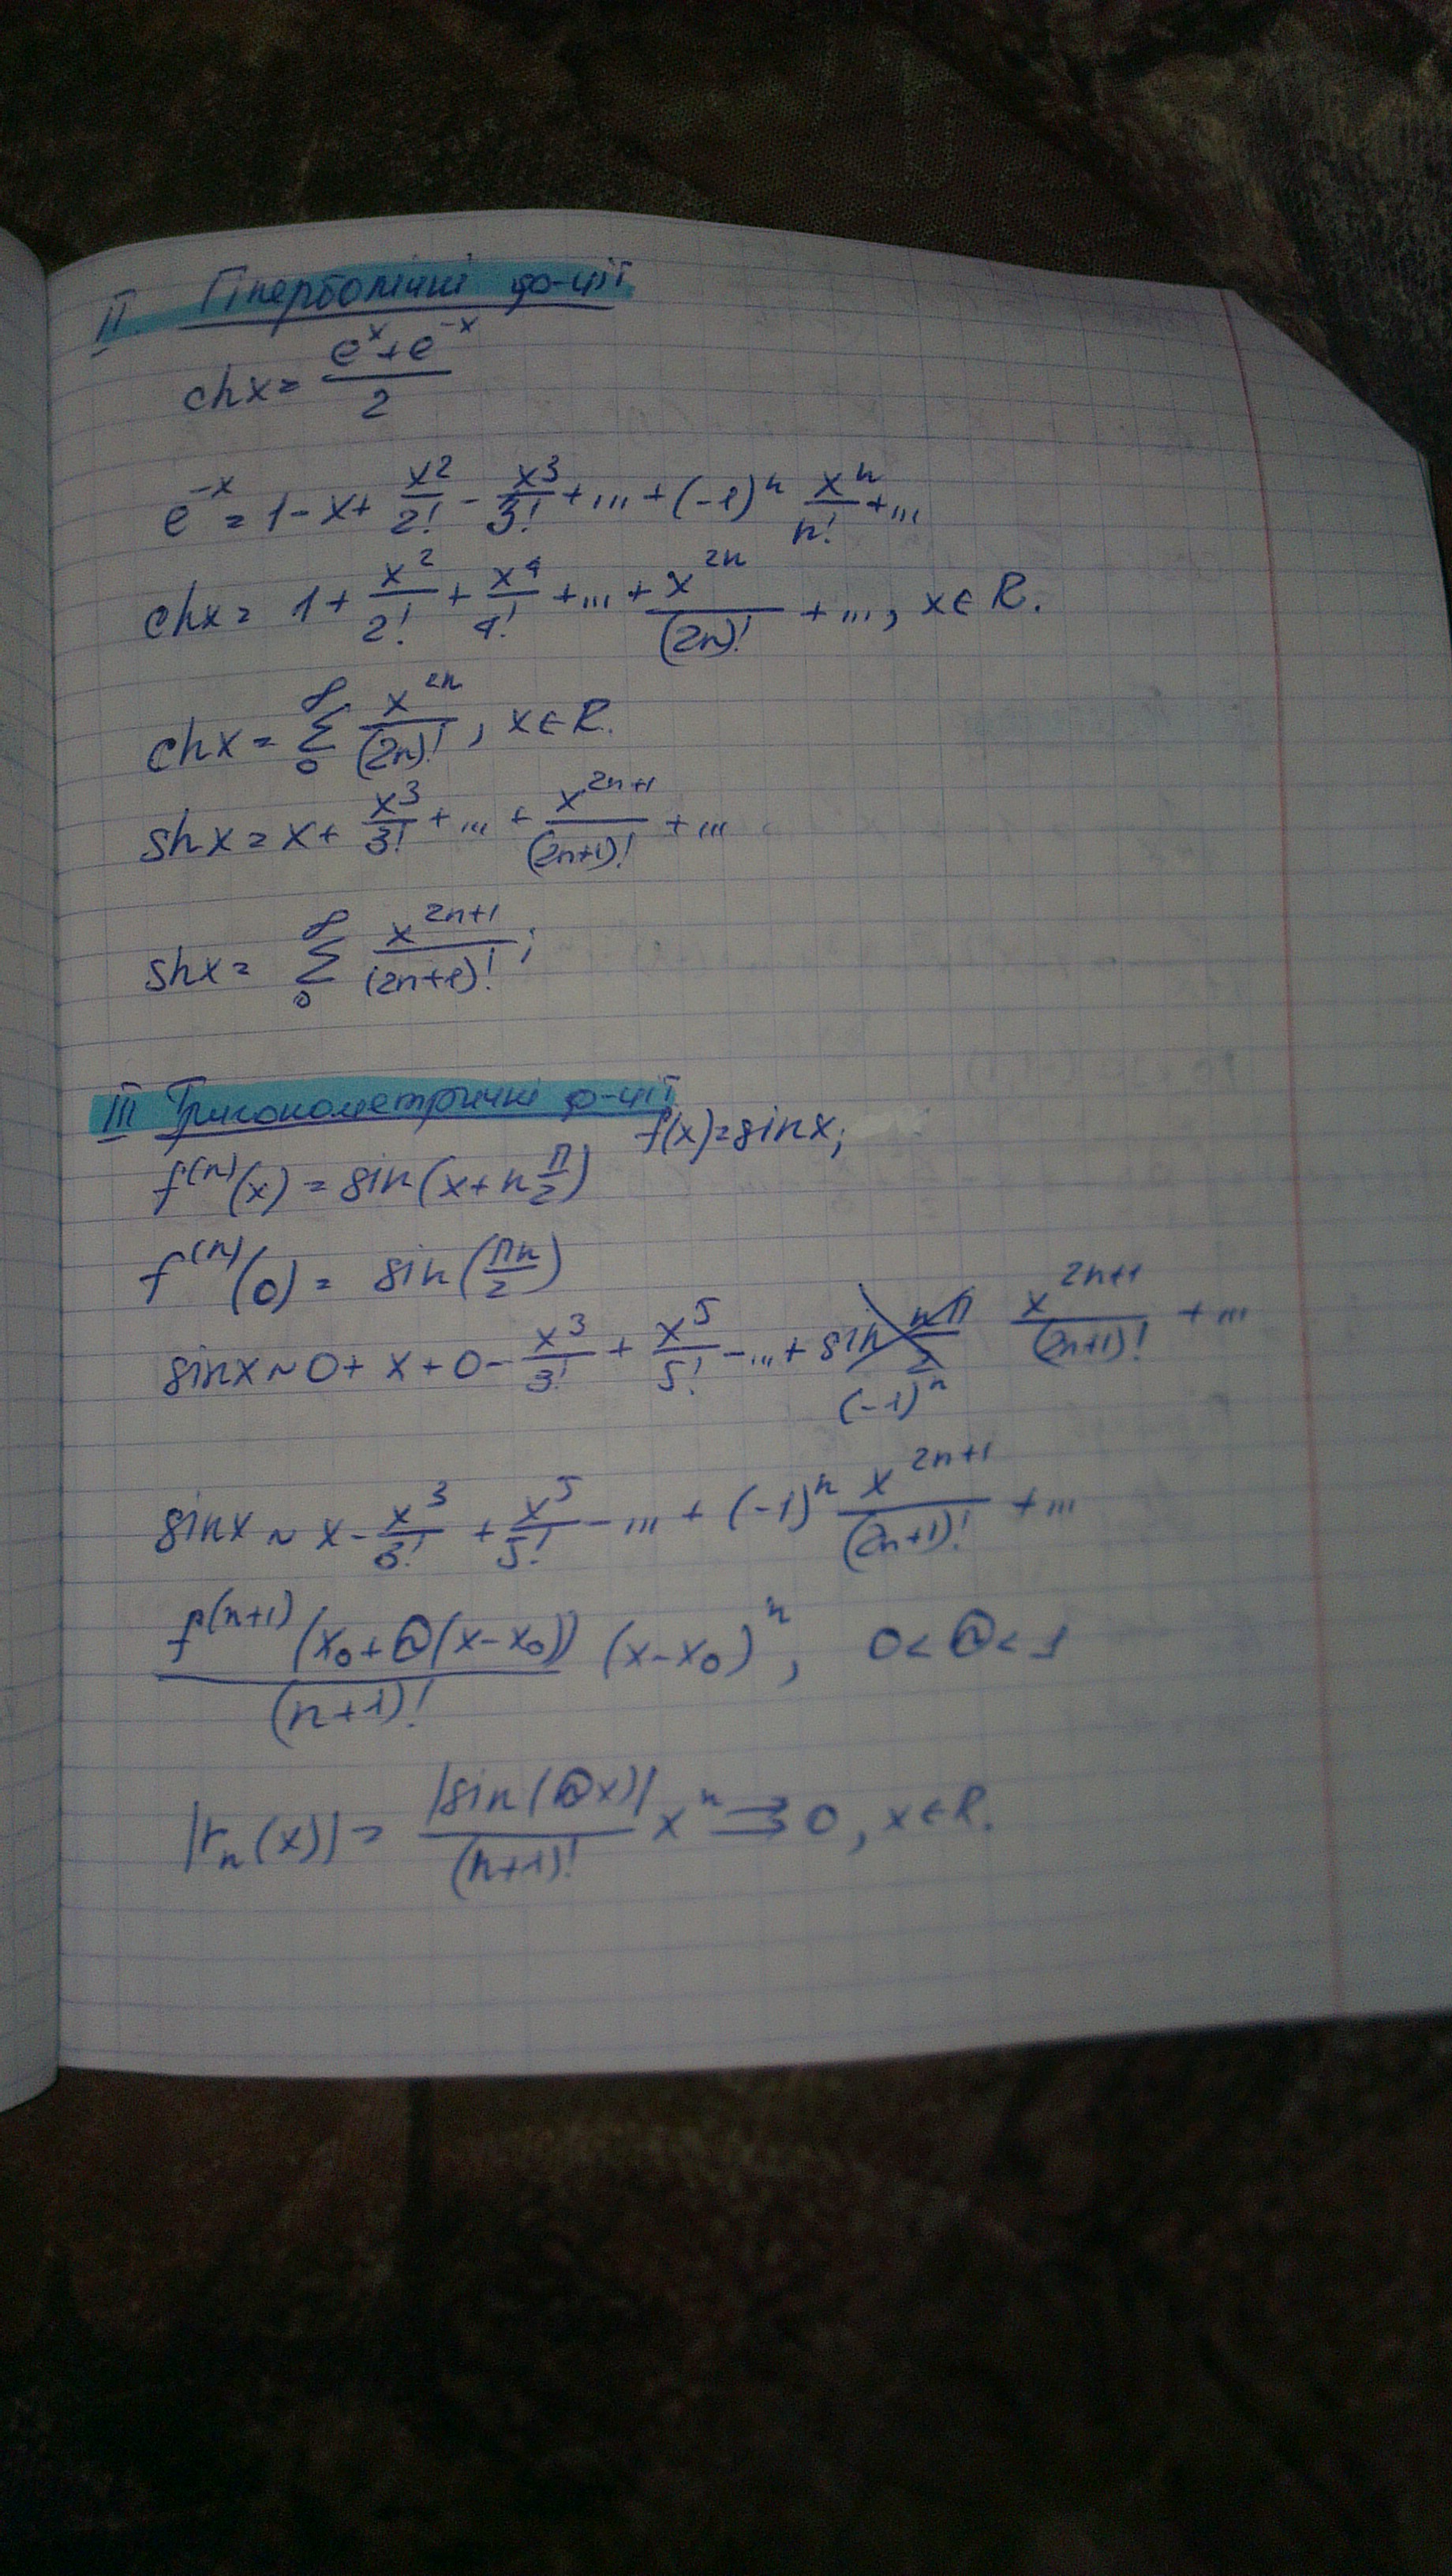 II. Гіперболічні ф-ції
chx = (e^x + e^{-x})/2
e^{-x} = 1 - x + x^2/2! - x^3/3! + ... + (-1)^n x^n/n! + ...
chx = 1 + x^2/2! + x^4/4! + ... + x^{2n}/(2n)! + ..., x ∈ R.
chx = ∑_0^∞ x^{2n}/(2n)!, x ∈ R.
shx = x + x^3/3! + ... + x^{2n+1}/(2n+1)! + ...
shx = ∑_0^∞ x^{2n+1}/(2n+1)!;
III Тригонометричні ф-ції
f(x) = sinx;
f^{(n)}(x) = sin(x + n π/2)
f^{(n)}(0) = sin(πn/2)
sinx ~ 0 + x + 0 - x^3/3! + x^5/5! - ... + sin nπ/2 x^{2n+1}/(2n+1)! + ...
(-1)^n
sinx ~ x - x^3/3! + x^5/5! - ... + (-1)^n x^{2n+1}/(2n+1)! + ...
f^{(n+1)}(x_0 + Θ(x - x_0))/(n+1)! (x - x_0)^n, 0 < Θ < 1
|r_n(x)| = |sin(Θx)|/(n+1)! x^n ⇉ 0, x ∈ R.